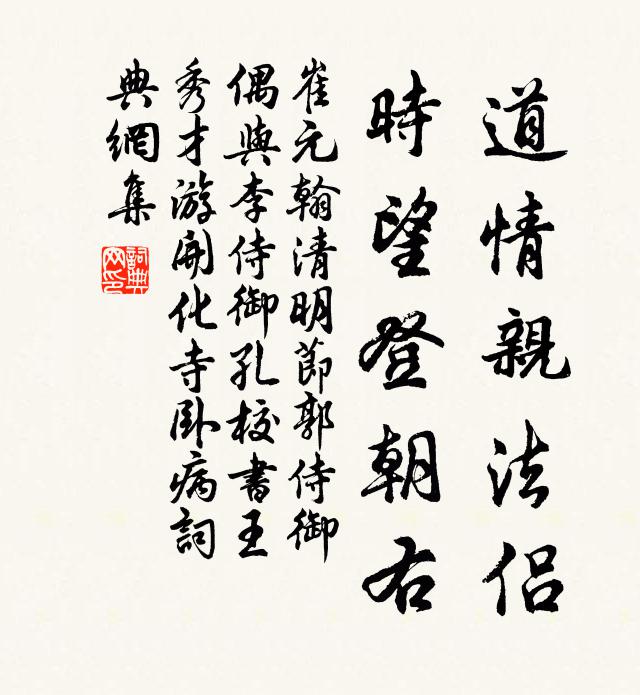 道情親法侶
時望登朝右
崔元翰清明節郭侍御
偶與李侍御孔校書王
秀才游開化寺臥病詞
典網集
詞典網印